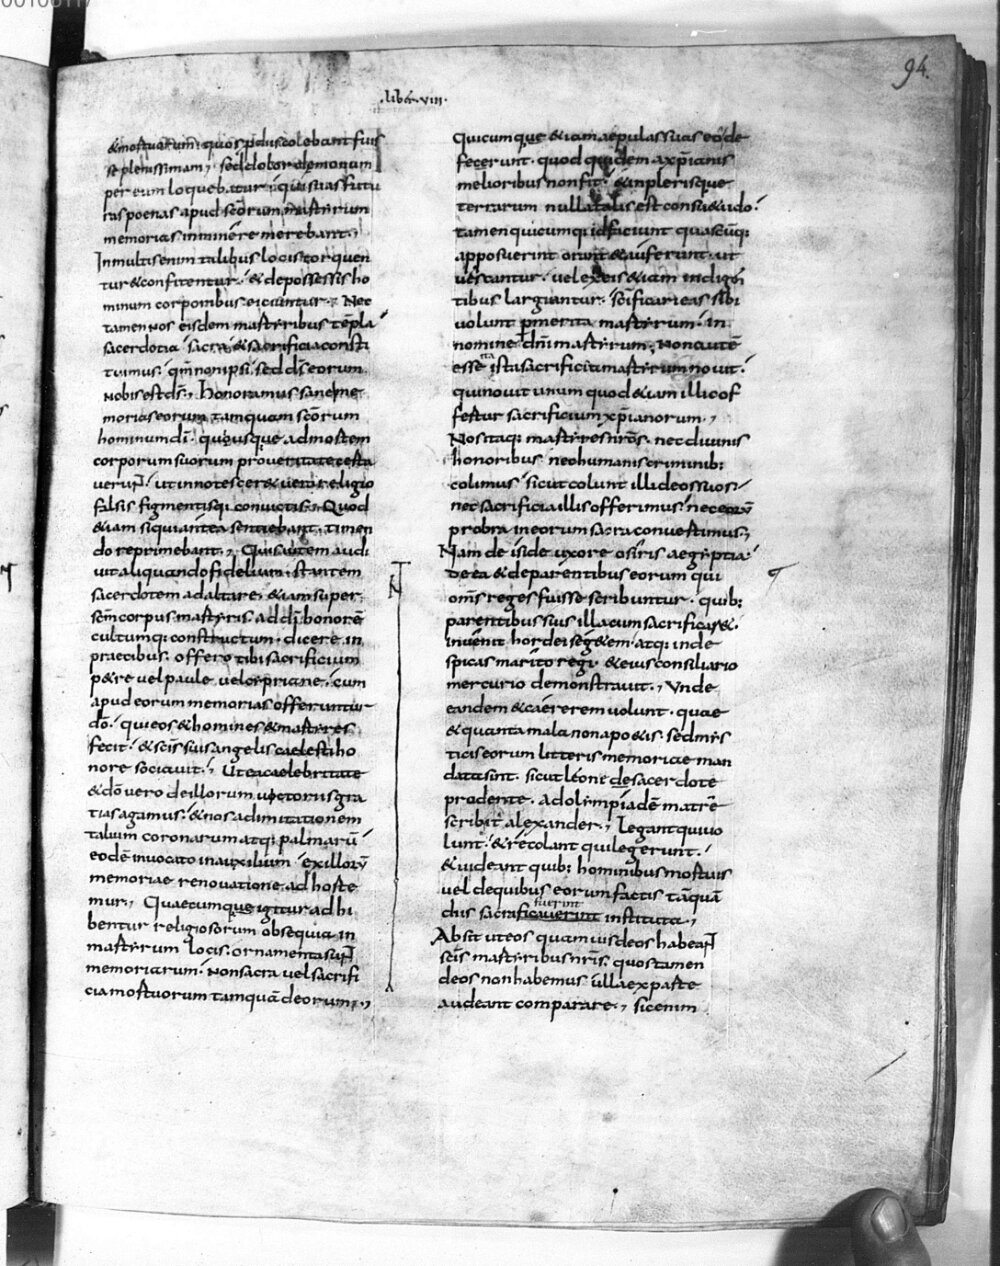 94.
.liber.viii.
&mortuorum quos p̄dus colebant fuis
se plenissimam; sed dolor demonum
per eum loquebatur; qui suas futu
ras poenas apud sc̄orum martyrum
memorias inminere merebant;
In multis enim talibus locis torquen
tur & confitentur. & de possessis ho
minum corporibus eiciuntur; Nec
tamen nos eisdem martyribus templa
sacerdotia sacra & sacrificia consti
tuimus. qm̄ non ipsi sed ds̄ eorum
nobis est ds̄; Honoramus sane me
morias eorum tamquam sc̄orum
hominum dī. qui usque ad mortem
corporum suorum pro veritate certa
verunt. ut innotesceret vera religio
falsis figmentisq; convictis; Quod
& iam siqui antea sentiebant. timen
do reprimebant; Quis autem audi
vit aliquando fidelium. stantem
sacerdotem ad altare. & iam super
sc̄m corpus martyris. ad dī honorē
cultumq; constructum. dicere in
praecibus. offero tibi sacrificium
p&re vel paule vel cypriane. cum
apud eorum memorias offeruntur
dō. qui eos & homines & martyres
fecit. & sc̄is suis angelis caelesti ho
nore sociavit; Ut ea caelebritate
& dō vero de illorum victoriis gra
tias agamus. & nos ad imitationem
talium coronarum atq; palmarū
eodē invocato in auxilium. ex illorū
memoriae renovatione ad horte
mur; Quaecumque igitur adhi
bentur religiosorum obsequia in
martyrum locis. ornamenta sunt
memoriarum. Non sacra vel sacrifi
cia mortuorum tamquā deorum;
Quicumque & iam aepulas suas eo de
fecerunt. quod quidem a xp̄ianis
melioribus non fit. & in plerisque
terrarum nulla talis est consu&udo.
tamen quicumq; id faciunt quas cūq;
apposuerint orant & auferunt. ut
vescantur. vel ex eis & iam indigen
tibus largiantur. sc̄ificari eas sibi
volunt p merita martyrum. in
nomine dn̄i martyrum; Non autē
esse ista sacrificia martyrum novit.
qui novit unum quod & iam illic of
fertur sacrificium xp̄ianorum;
Nos itaq; martyres nr̄os. nec divinis
honoribus nec humanis criminib;
colimus sicut colunt illi deos suos.
nec sacrificia illis offerimus nec eorū
probra in eorum sacra convertimus;
Nam de iside uxore osiris aegyptia
dea & de parentibus eorum qui
om̄s reges fuisse scribuntur. quib;
parentibus suis illa cum sacrificar&.
invenit hordei seg&em. atq; inde
spicas marito regi. & eius consiliario
mercurio demonstravit; Unde
eandem & caererem volunt. quae
& quanta mala non apo&is. sed mys
ticis eorum litteris memoriae man
data sint. sicut leone sacerdote
prodente. ad olimpiadē matrē
scribit alexander; legant qui vo
lunt. & recolant qui legerunt.
& videant quib; hominibus mortuis
vel de quibus eorum factis tāquā
fuerint
diis sacra ficaverint instituta;
Absit ut eos quamvis deos habeant
sc̄is martyribus nr̄is. quos tamen
deos non habemus ulla ex parte
audeant comparare; Sic enim